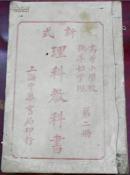 新式
高等小學校
秋季始業用
理科教科書
第二冊
上海中華書局印行